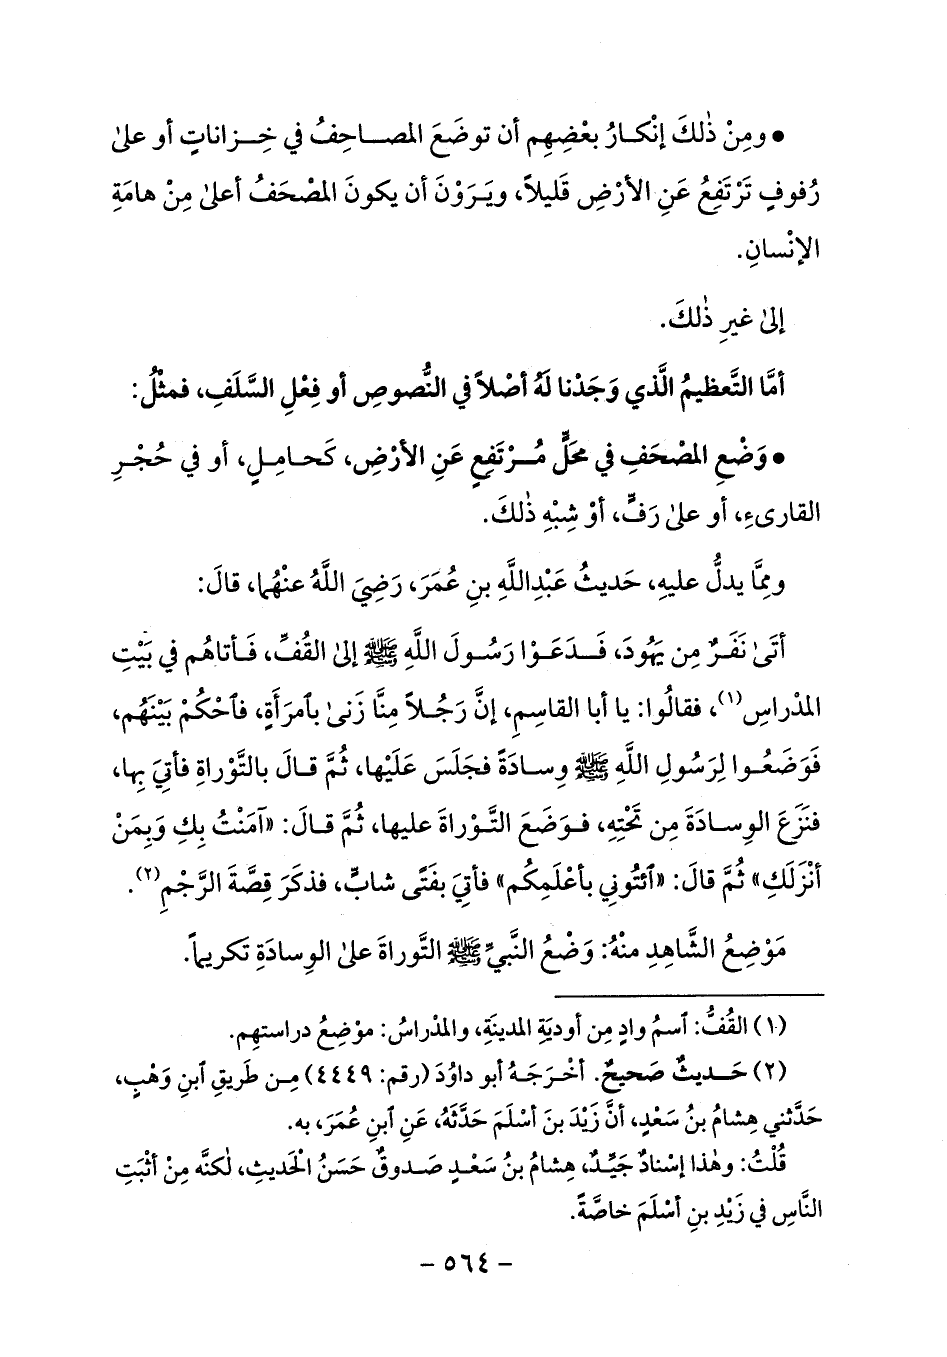 • ومِنْ ذٰلكَ إنْكارُ بعْضِهِم أن توضَعَ المصاحِفُ في خِزاناتٍ أو علىٰ
رُفوفٍ تَرْتَفِعُ عَنِ الأرْضِ قَليلاً، ويَرَوْنَ أن يكونَ المصْحَفُ أعلىٰ مِنْ هامَةِ
الإنْسانِ.
إلىٰ غيرِ ذٰلكَ.
أمَّا التَّعظيمُ الَّذي وَجَدْنا لَهُ أصْلاً في النُّصوصِ أو فِعْلِ السَّلَفِ، فمثْلُ:
• وَضْعِ المصْحَفِ في محَلٍّ مُرْتَفعٍ عَنِ الأرْضِ، كَحامِلٍ، أو في حُجْرِ
القارىءِ، أو علىٰ رَفٍّ، أوْ شِبْهِ ذٰلكَ.
وممَّا يدلُّ عليهِ، حَديثُ عَبْدِاللَّهِ بنِ عُمَرَ، رَضِيَ اللَّهُ عنْهُما، قالَ:
أتَىٰ نَفَرٌ مِن يَهُودَ، فَدَعَوْا رَسُولَ اللَّهِ ﷺ إلىٰ القُفِّ، فَأتاهُم في بَيْتِ
المدْراسِ(١)، فقالُوا: يا أبا القاسِمِ، إنَّ رَجُلاً مِنَّا زَنىٰ بٱمرَأةٍ، فٱحْكُمْ بَيْنَهُم،
فَوَضَعُوا لِرَسُولِ اللَّهِ ﷺ وِسادَةً فجَلَسَ عَلَيْها، ثُمَّ قالَ بالتَّوْراةِ فأتيَ بِها،
فنَزَعَ الوِسادَةَ مِن تَحْتِهِ، فوَضَعَ التَّوْراةَ عليها، ثُمَّ قالَ: «آمَنْتُ بِكِ وَبِمَنْ
أنْزَلَكِ» ثُمَّ قالَ: «ٱئْتُوني بأعْلَمِكُم» فأتيَ بفَتًى شابٍّ، فذكَرَ قِصَّةَ الرَّجْمِ(٢).
مَوْضِعُ الشَّاهِدِ منْهُ: وَضْعُ النَّبيِّ ﷺ التَّوراةَ علىٰ الوِسادَةِ تكريماً.
(١) القُفُّ: ٱسمُ وادٍ مِن أوديَةِ المدينَةِ، والمدْراسُ: موْضِعُ دراستهِم.
(٢) حَديثٌ صَحيحٌ. أخْرَجَهُ أبو داوُدَ (رقم: ٤٤٤٩) مِن طَريقِ ٱبنِ وَهْبٍ،
حَدَّثني هِشامُ بنُ سَعْدٍ، أنَّ زَيْدَ بنَ أسْلَمَ حَدَّثَهُ، عَنِ ٱبنِ عُمَرَ، به.
قُلْتُ: وهٰذا إسْنادٌ جَيِّدٌ، هِشامُ بنُ سَعْدٍ صَدوقٌ حَسَنُ الْحَديثِ، لٰكنَّه مِنْ أثْبَتِ
النَّاسِ في زَيْدِ بنِ أسْلَمَ خاصَّةً.
– ٥٦٤ –